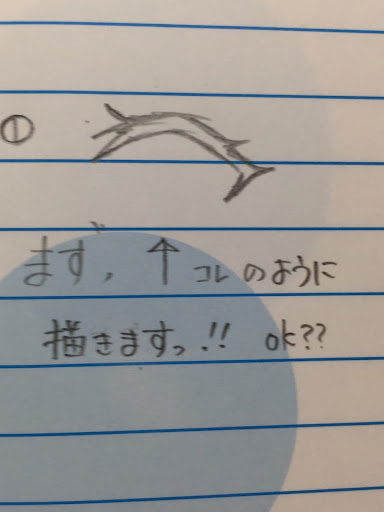 ①
まず、↑コレのように
描きますっ!! ok??